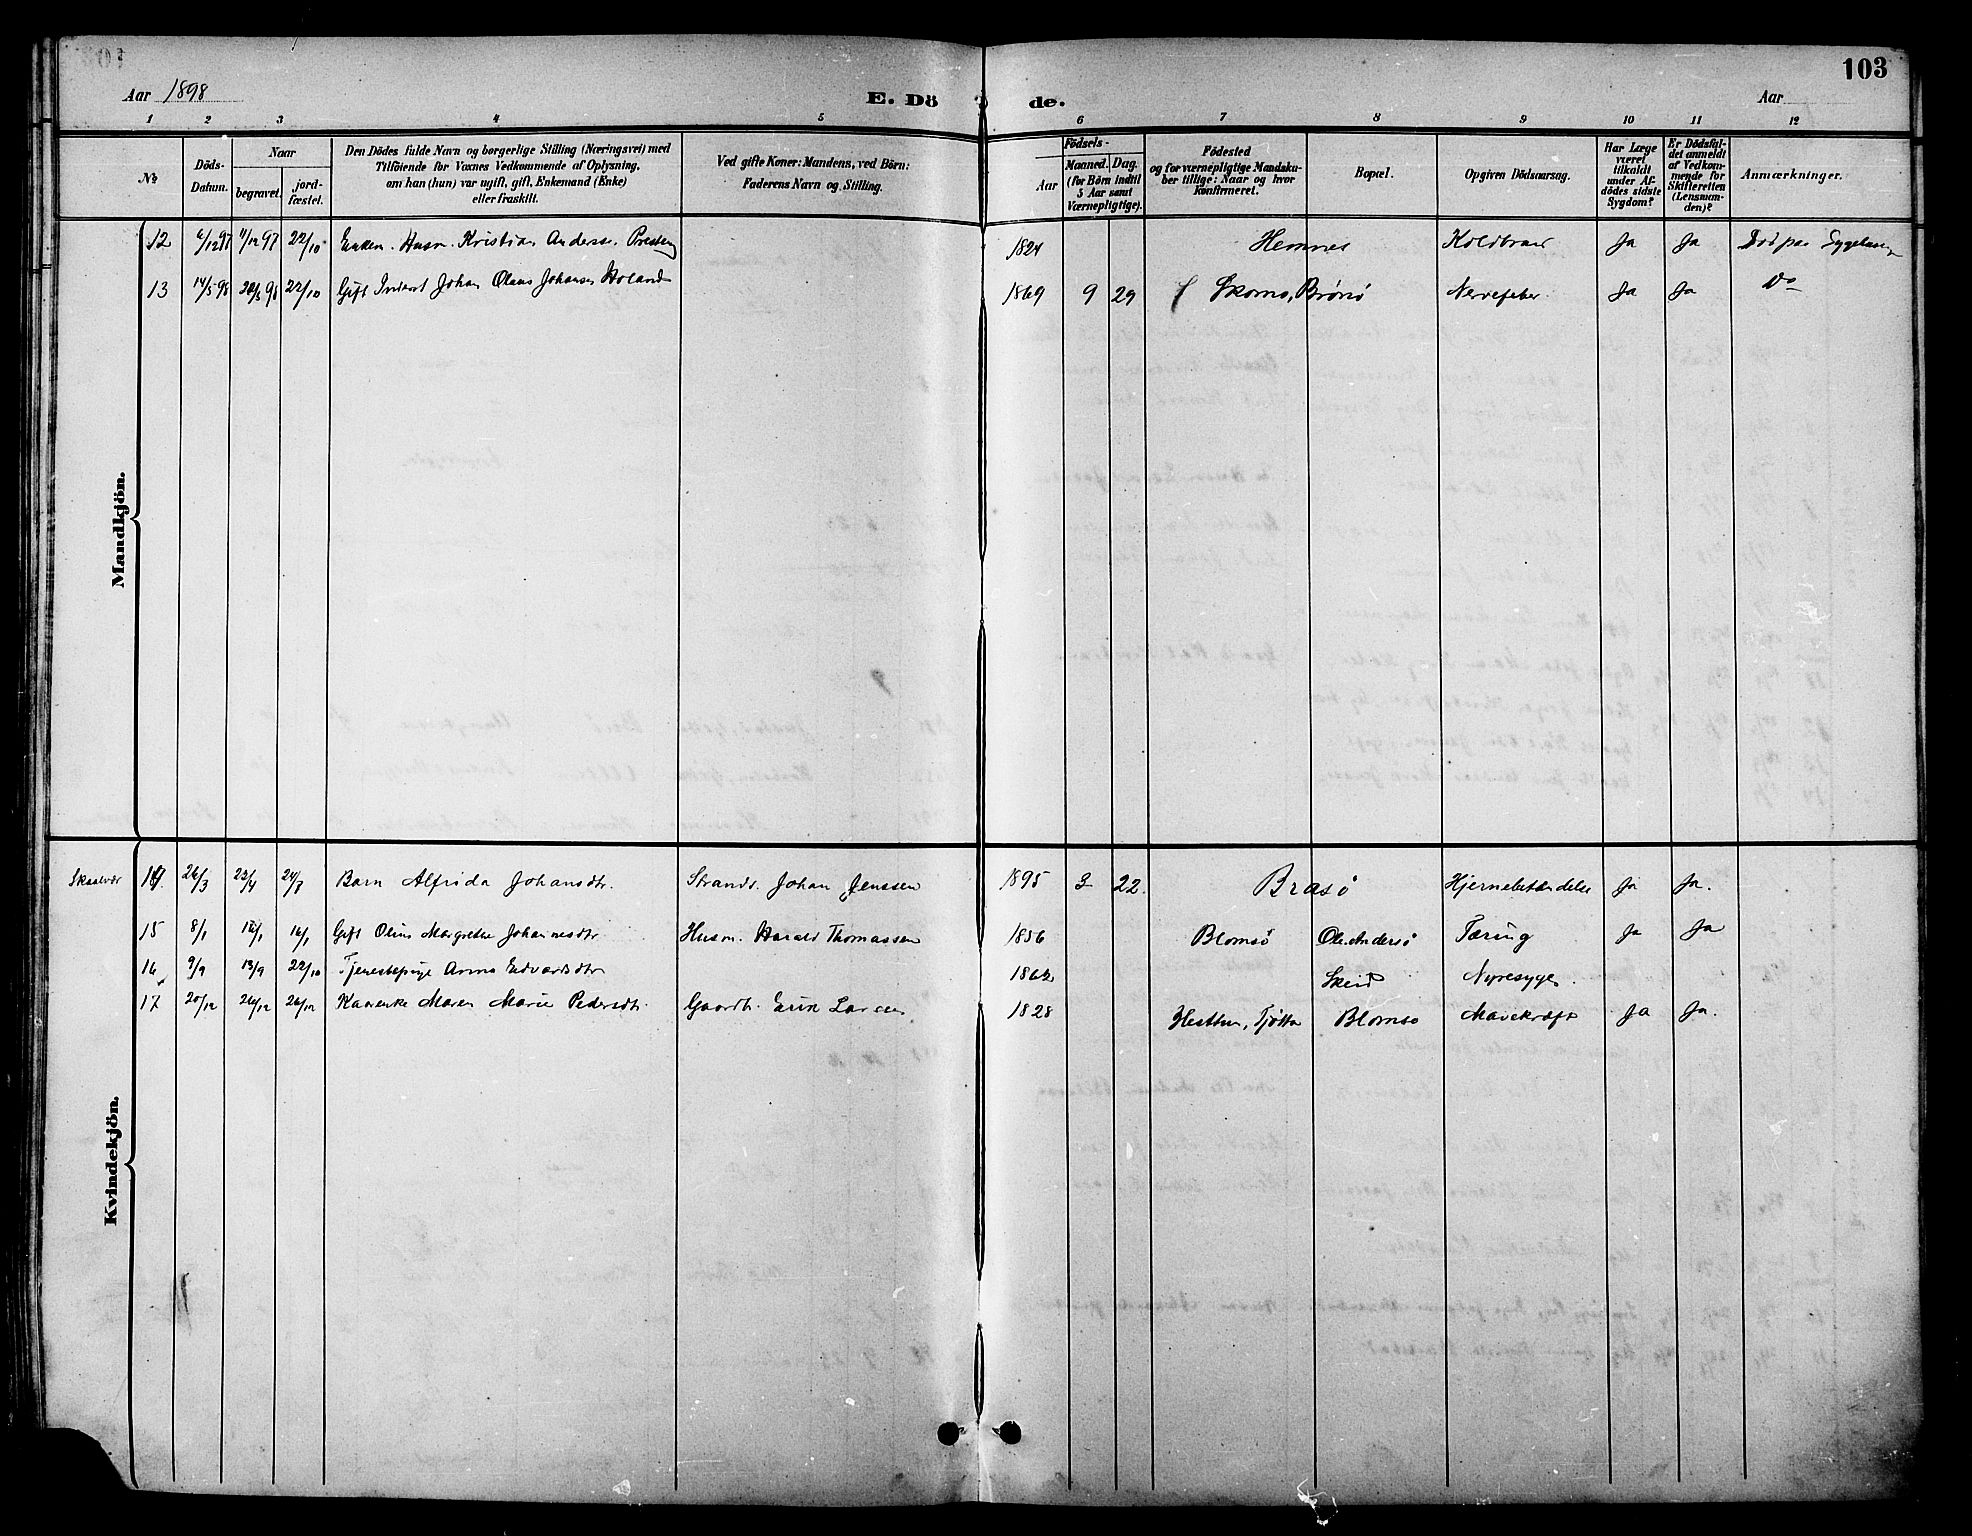 103
Aar 1898
E. Dö de.
Aar
1 2 3 4 5 6 7 8 9 10 11 12
No
Döds-Datum.
Naar
begravet.
jord-fæstet.
Den Dödes fulde Navn og borgerlige Stilling (Næringsvei) med
Tilföiende for Voxnes Vedkommende af Oplysning,
om han (hun) var ugift, gift, Enkemand (Enke)
eller fraskilt.
Ved gifte Koner: Mandens, ved Börn:
Faderens Navn og Stilling.
Födsels-
Aar
Maaned. Dag.
(for Börn indtil
5 Aar samt
Værnepligtige).
Födested
og for værnepligtige Mandsku-
ber tillige: Naar og hvor
Konfirmeret.
Bopæl.
Opgiven Dödsaarsag.
Har Læge
været
tilkaldt
under Af-
dödes sidste
Sygdom?
Er Dödsfal-
det anmeldt
af Vedkom-
mende for
Skifteretten
(Lensman-
den)?
Anmærkninger.
Mandkjön.
12 6/12 97 11/12 97 22/10 Husm. Kristian Anderss. 1824 Hemnes Koldbrand Ja Ja Död paa
13 14/5 98 20/5 98 22/10 Gift Inderst Johan Olaus Johansen Holand 1869 9 29 Skomo, Brönö Nervefeber Ja Ja Do
Kvindekjön.
Skaalvær 14 26/3 23/4 24/7 Barn Alfrida Johansdtr. Strands. Johan Jenssen 1895 3 22. Brasö Hjernebetændelse Ja Ja.
15 8/1 16/1 16/1 Gift Oline Margrethe Johannesdtr Husm. Harald Thomassen 1856 Blomsö Ole Andersö Tæring Ja Ja
16 9/9 13/9 22/10 Tjenestepige Anna Edvardsdtr 1862 Skeid Nyresyge
17 20/12 26/12 26/12 Kaarenke Maren Marie Pedersdtr. Gaardb. Erik Larsen 1828 Hesttun, Tjötta Blomsö Mavekræft Ja Ja.